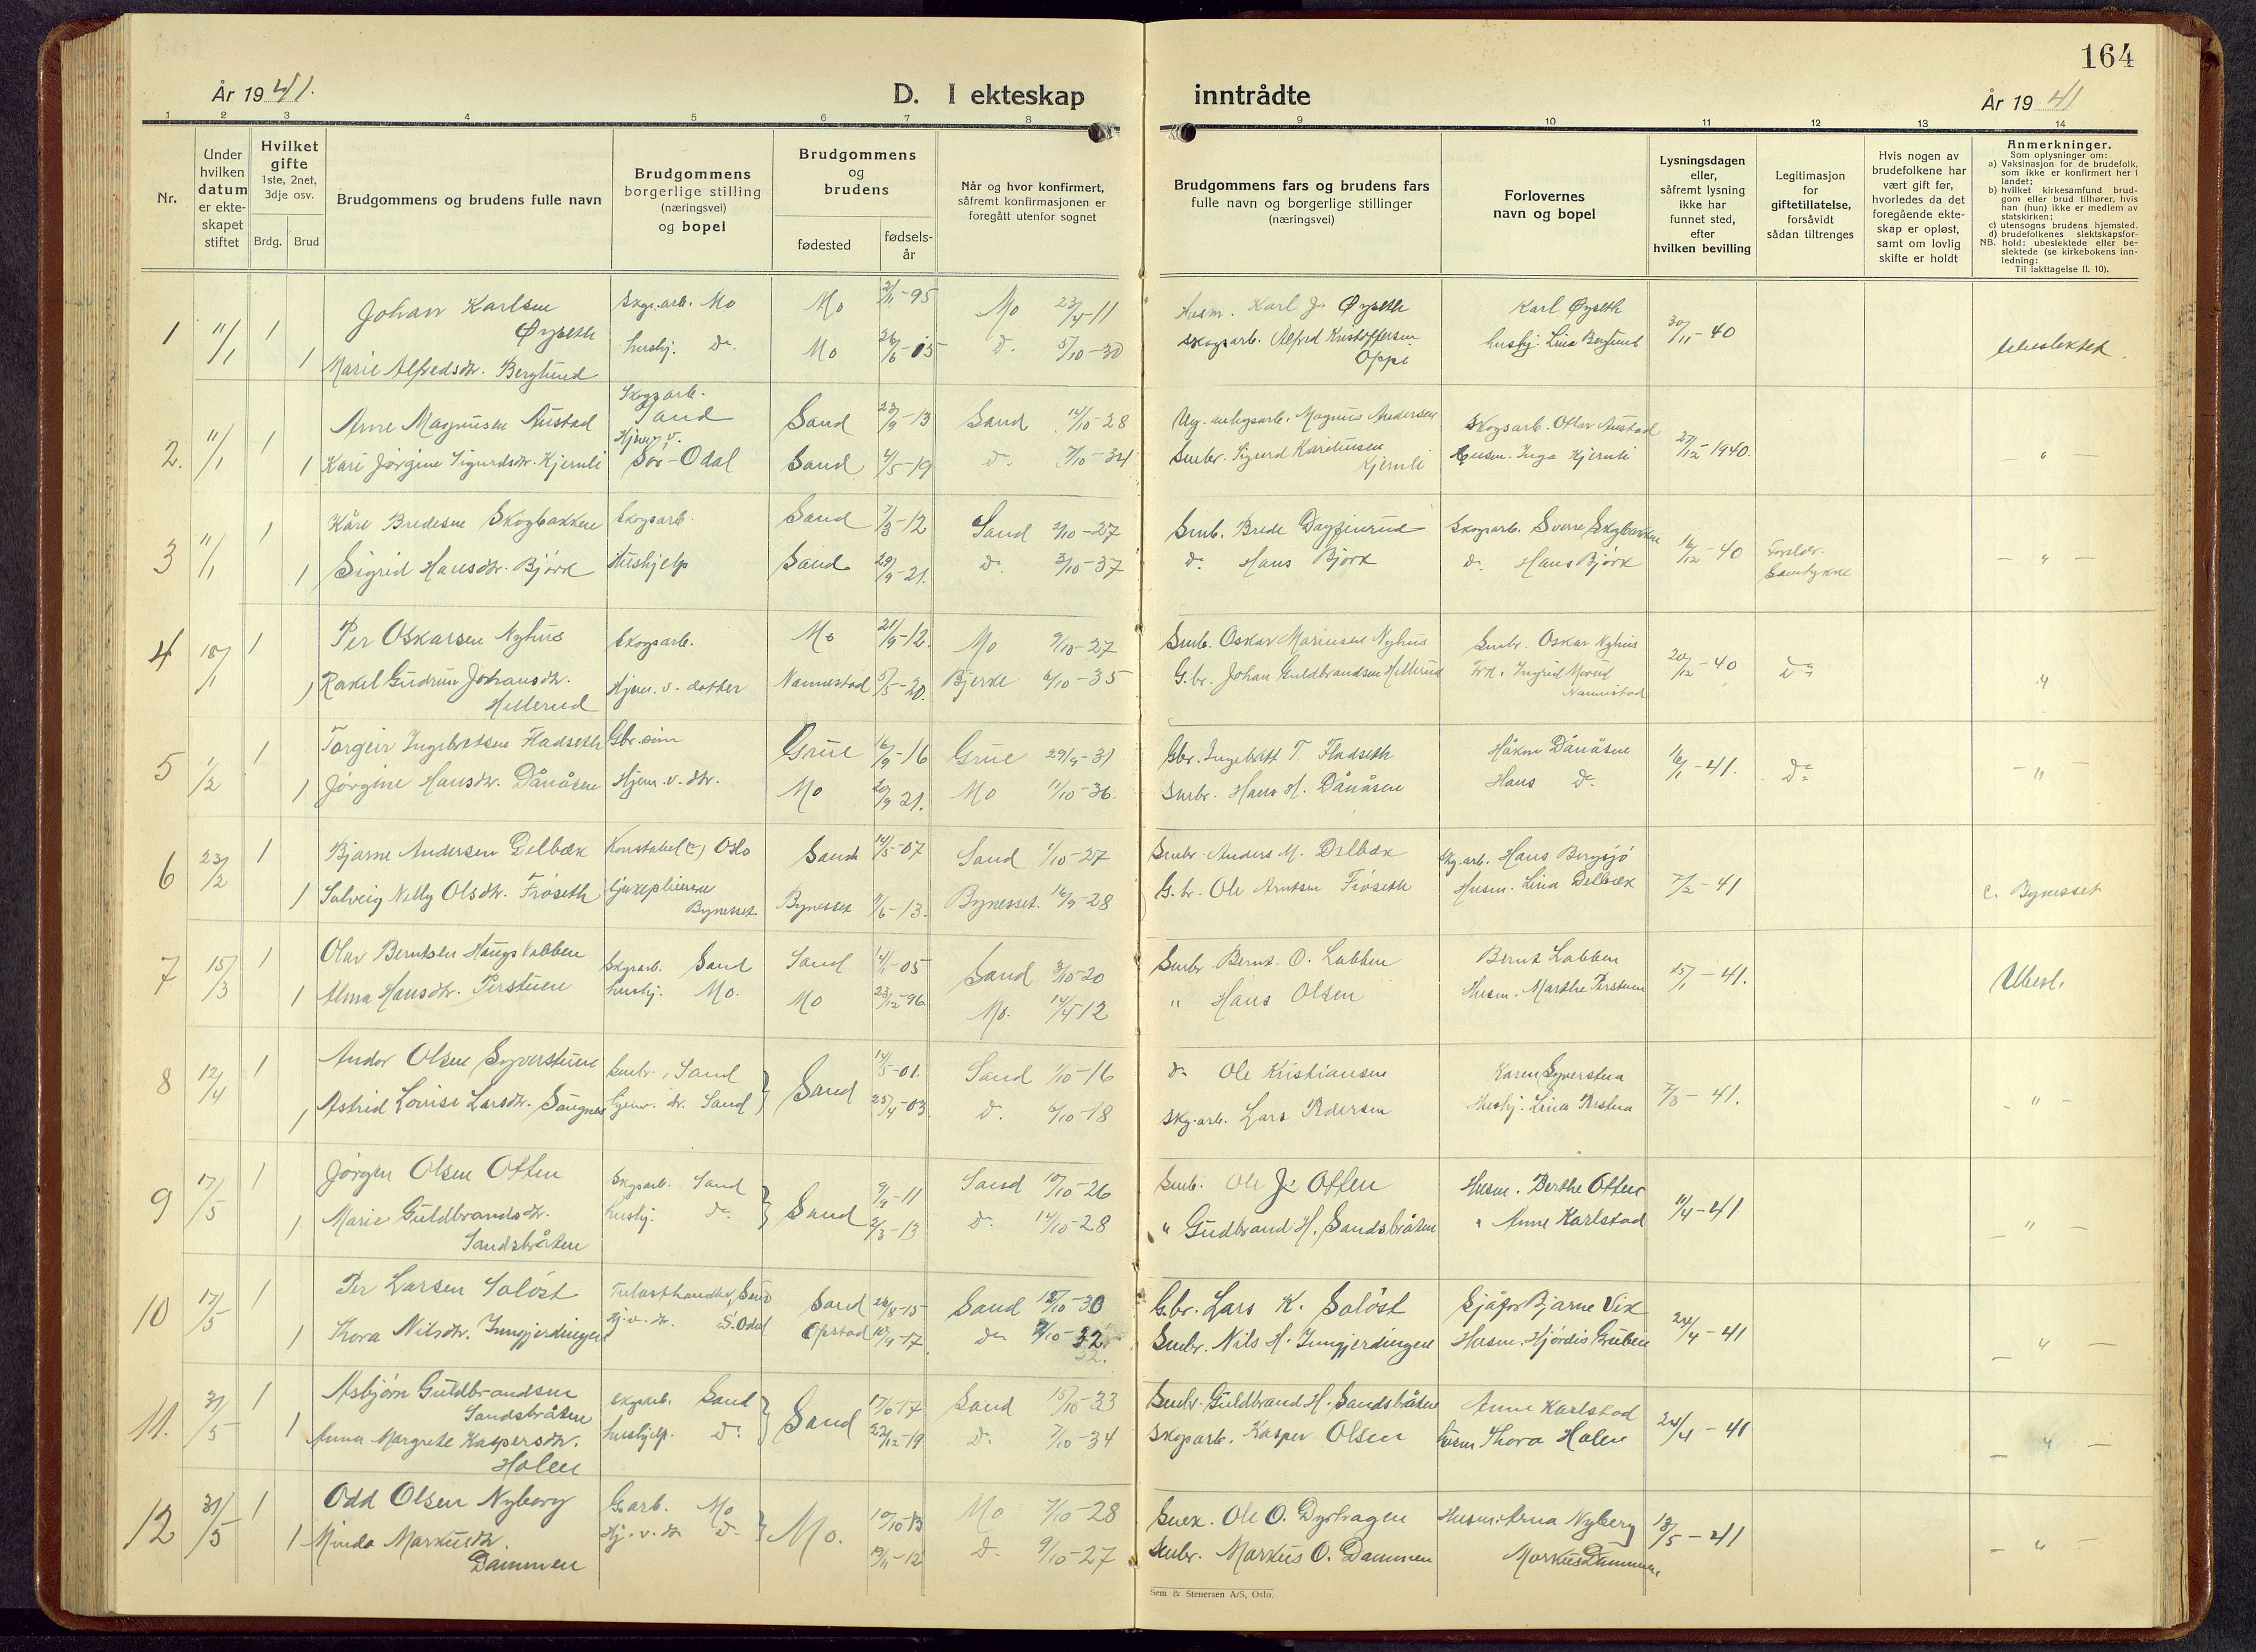 164
År 1941.
D. I ekteskap inntrådte
År 1941
1 2 3 4 5 6 7 8 9 10 11 12 13 14
Nr.
Under hvilken datum er ekteskapet stiftet
Hvilket gifte 1ste, 2net, 3dje osv.
Brdg. Brud
Brudgommens og brudens fulle navn
Brudgommens borgerlige stilling (næringsvei) og bopel
Brudgommens og brudens
fødested
fødsels-år
Når og hvor konfirmert, såfremt konfirmasjonen er foregått utenfor sognet
Brudgommens fars og brudens fars fulle navn og borgerlige stillinger (næringsvei)
Forlovernes navn og bopel
Lysningsdagen eller, såfremt lysning ikke har funnet sted, efter hvilken bevilling
Legitimasjon for giftetillatelse, forsåvidt sådan tiltrenges
Hvis nogen av brudefolkene har vært gift før, hvorledes da det foregående ekteskap er opløst, samt om lovlig skifte er holdt
Anmerkninger.
Som oplysninger om:
a) Vaksinasjon for de brudefolk, som ikke er konfirmert her i landet;
b) hvilket kirkesamfund brudgom eller brud tilhører, hvis han (hun) ikke er medlem av statskirken;
c) utensogns brudens hjemsted.
d) brudefolkenes slektskapsforhold: ubeslektede eller beslektede (se kirkebokens innledning:
NB.
Til iakttagelse II. 10).
1 11/1 1 Johan Karlsen Øyseth Skgs.arb. Mo Mo -95 Mo 23/4-11 Husm. Karl J. Øyseth Karl Øyseth 30/11-40 Ubeslektet
1 Marie Alfredsdtr. Berglund hushj. do. Mo 26/6-05 do. 5/10-30 Skogsarb. Alfred Kristoffersen Oppi hushj. Lina Berglund
2. 11/1 1 Arne Magnusen Austad Skogsarb. Sand Sand 23/9-13 Sand 14/10-28 Magnus Andersen Skogsarb. Olav Austad 27/12-1940. - " -
1 Kari Jørgine Sigurdsdtr. Kjernli Hjem. v. Sør-Odal Sand 4/5-19 do. 7/10-34 Smbr. Sigurd Karelius­en Kjernli Husm. Inga Kjernli
3 11/1 1 Kåre Bredesen Skogbakken Skogsarb. Sand 7/3-12 Sand 2/10-27 Smb. Brede Dagfinrud Skogsarb. Sverre Skogbakken 16/12-40 Foreldr. Samtykke - " -
1 Sigrid Hansdtr. Bjørk Hushjelp Sand 29/9-21. do. 3/10-37 do. Hans Bjørk do. Hans Bjørk
4 18/1 1 Per Oskarsen Nyhus Skogsarb. Mo 21/9-12. Mo 9/10-27 Smb. Oskar Mariusen Nyhus Smbr. Oskar Nyhus 20/12-40 do. "
1 Rakel Gudrun Johansdtr. Hellerud Hjem. v. datter Nannestad 5/5-20. Bjerke 6/10-35 G.br. Johan Guldbrandsen Hellerud Frk. Ingrid Nannestad
5 1/2 1 Torgeir Ingebretsen Fladseth Gbr.søn Grue 16/9-16 Grue 29/9-31 Gbr. Ingebrett T. Fladseth Håkon Dånåsen 16/1-41. do. - " -
1 Jørgine Hansdtr. Dånåsen Hjem. v. dtr. Mo 20/9 21. Mo 11/10-36. Smbr. Hans H. Dånåsen Hans do.
6 23/2 1 Bjarne Andersen Delbæk Konstabel Oslo Sand 14/5-07 Sand 1/10-27 Smbr. Anders M. Delbæk Skg.arb. Hans Bergsjø 7/2-41 c. Bynesset
1 Solveig Nelly Olsdtr. Frøseth Bynesset. Bynesset 11/6-13. Bynesset. 16/9-28 G.br. Ole Arntsen Frøseth Husm. Lina Delbæk
7 15/3 1 Olav Berntsen Haugslabben Skgsarb. Sand Sand 14/1-05 Sand 3/10-20 Smbr. Bernt O. Labben Bernt Labben 15/1-41. Ubesl.
1 Alma Hansdtr. Perstuen hushj. Mo. Mo 23/12-96. Mo. 14/4-12 " Hans Olsen Husm. Marthe Perstuen
8 12/4 1 Andor Olsen Syverstuen Smbr., Sand Sand 14/5-01. Sand 1/10-16 do. Ole Kristiansen Karen Syverstua 7/3-41. - " -
1 Astrid Lovise Larsdtr. Saugnes hjemv. dtr. Sand 25/4-03 do. 6/10-18 Skg.arb. Lars Pedersen Hushj. Lina Perstua
9 17/5 1 Jørgen Olsen Otten Skgsarb. Sand Sand 9/9-11 Sand 10/10-26 Smb. Ole J. Otten Husm. Berthe Otten 11/4-41 - " -
1 Marie Guldbrandsdtr. Sandsbråten hushj. do. 2/3-13 do. 14/10-28 " Gudbrand H. Sandsbråten " Anne Karlstad
10 17/5 1 Per Larsen Saløst Trelasthandler, Sand Sand 26/8-15 Sand 12/10-30 G.br. Lars K. Saløst Sjåfør Bjarne Vik 24/4-41 - " -
1 Thora Nilsdtr. Inngjerdingen Hj. v. dtr. S. Odal Opstad 10/4-17. do. 2/10-32 Smbr. Nils H. Inngjerdingen Husm. Hjørdis Gruben
11. 31/5 1 Asbjørn Guldbrandsen Sandsbråten Skgsarb. Sand Sand 17/6-17 Sand 15/10-33 Smbr. Guldbrand H. Sandsbråten Anne Karlstad 24/4-41 - " -
1 Anna Margrethe Kaspersdtr. Holen hushjelp. do. 22/12-19 do. 7/10-34 Skogsarb. Kasper Olsen husm Thora Holen
12 31/5 1 Odd Olsen Nyberg G.arb. Mo Mo. 10/10-13 Mo 7/10-28 Ole O. Dyrhagen Husm. Arna Nyberg 13/5-41 - " -
1 Minda Markusdtr. Dammen Hj. v. dtr. do. 19/11-12 do. 9/10-27 Smbr. Markus O. Dammen Markus Dammen
Sem & Stenersen A/S, Oslo.